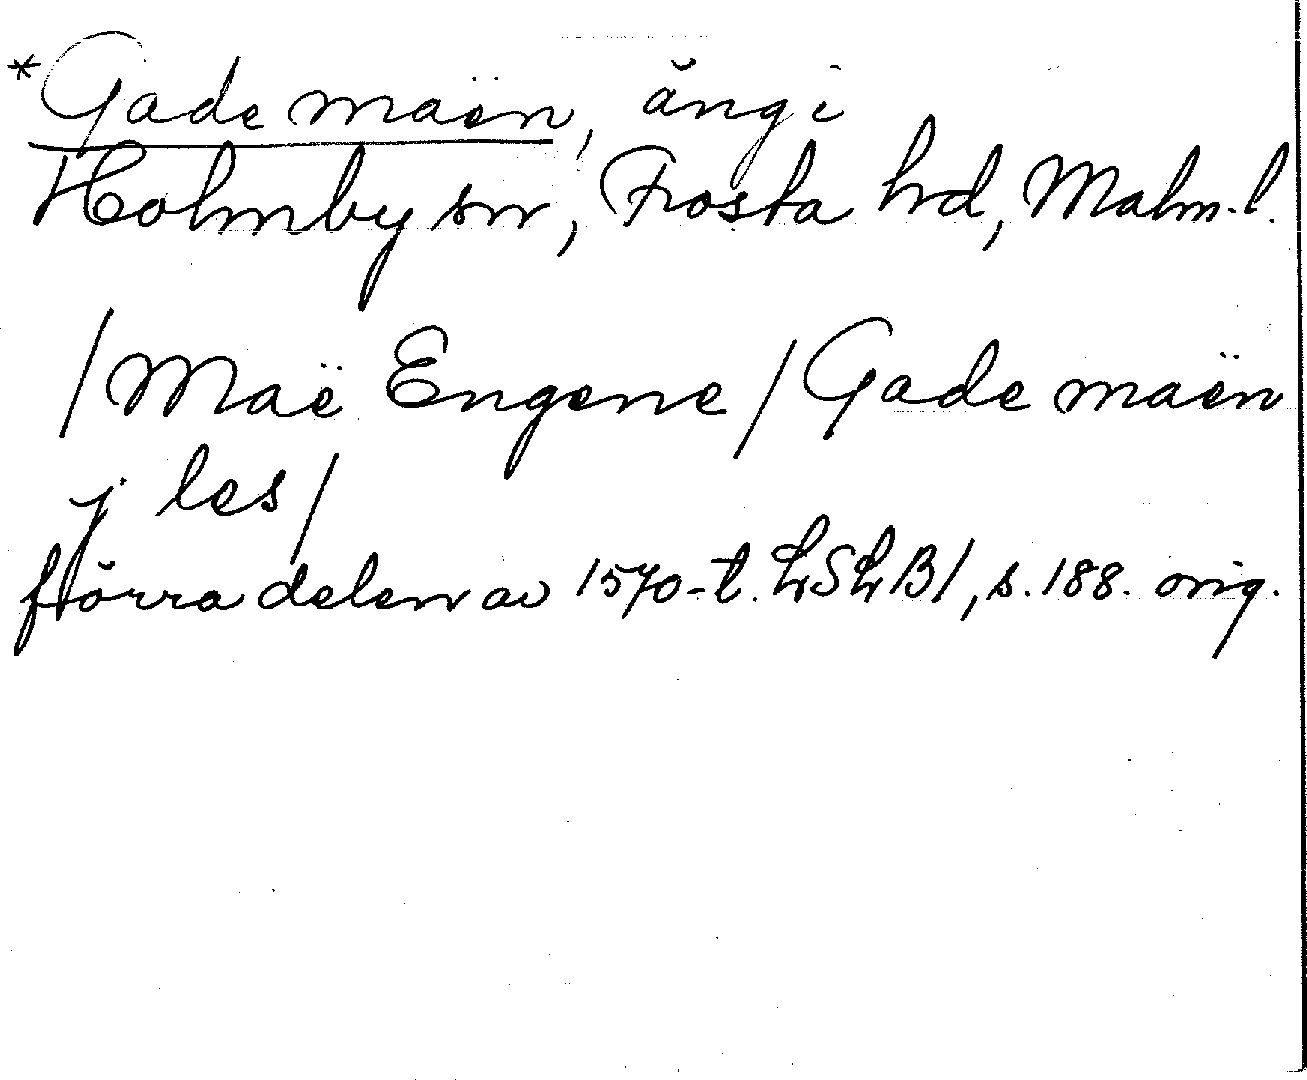 *Gade maën, äng i
Holmby sn, Frosta hd, Malm. l.
/Maë Engene/ Gade maën
j les/
förra delen av 1570-t. LSLB1, s. 188. orig.